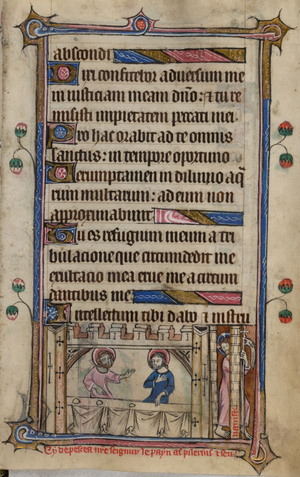 abscondi
Dixi confitebor adversum me
iniusticiam meam dño: & tu re
misisti impietatem peccati mei
Pro hac orabit ad te omnis
sanctus: in tempore oportuno
Verumptamen in diluvio aq̄
rum multarum: ad eum non
approximabunt
Tu es refugium meum a tri
bulacione que circumdedit me
exultacio mea erue me a circum
dantibus me
Intellectum tibi dabo & instru